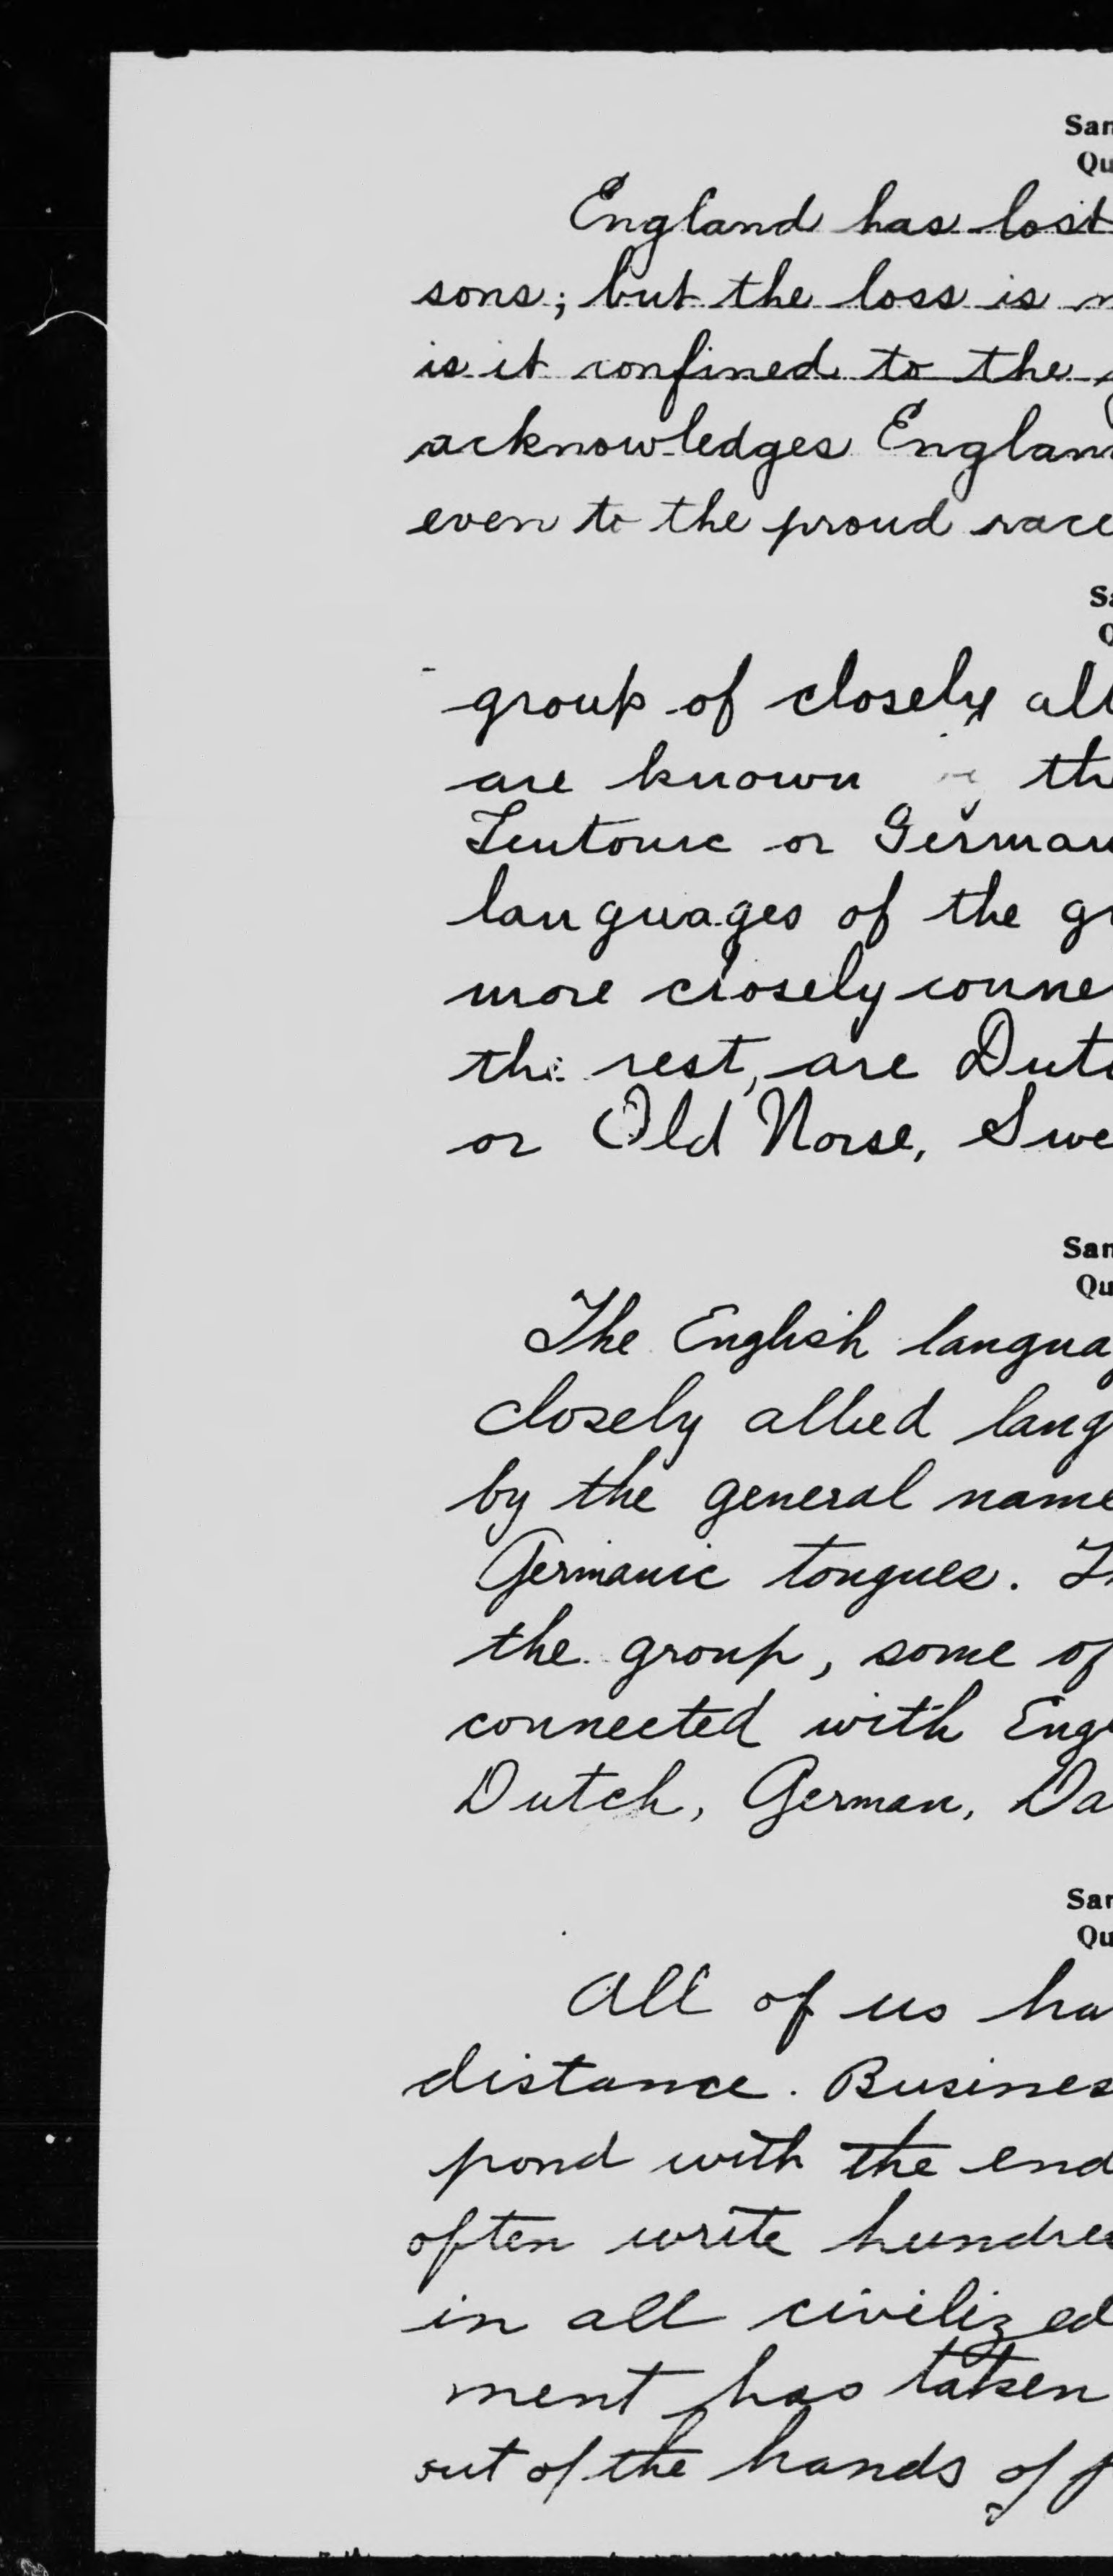 San
Qu
England has lost
sons; but the loss is
is it confined to the
acknowledges Englan
even to the proud race
Sa
Q
group of closely all
are known the
Teutonic or German
languages of the gr
more closely conne
the rest, are Dutc
or Old Norse, Swe
San
Qu
The English langua
closely allied lang
by the general name
Germanic tongues. Th
the group, some of
connected with Engl
Dutch, German, Da
San
Qu
All of us ha
distance. Busines
pond with the end
often write hundre
in all civilized
ment has taken
out of the hands of p